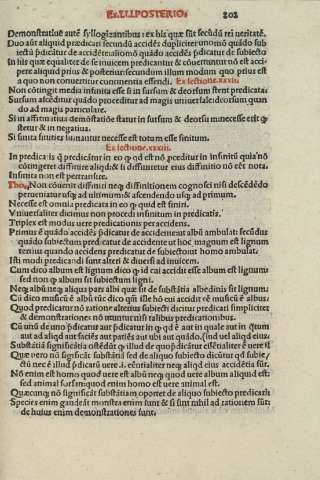 Ex.LI.POSTERIO. 202
Demonstratiue autē syllogizantibus: ex his quę sūt secundū rei ueritatē.
Duo aūt aliquid prædican secundū accidēs dupliciter unomō quādo sub
iectū p̄dicatur de accidēti: aliomō quādo accidēs p̄dicatur de subiecto
In his quæ equaliter de se inuicem predicantur & cōuertuntur nō est acci
pere aliquid prius & posterius: secundum illum modum quo prius est
a quo non conuertitur consequentia essendi. Ex lectione.xxxii.
Non cōtingit media infinita esse si in sursum & deorsum stent predicata:
Sursum ascēditur quādo proceditur ad magis uniuersale: deorsum quan
do ad magis particulare.
Si in affirmatiua demōstratiōe statur in sursum & deorsum necesse erit ꝙ
stetur & in negatiua.
Si finita finities sumantur necesse est totum esse finitum.
Ex lectione.xxxiii.
In predicatis q̄ predicātur in eo ꝙ qd est nō proceditur in infinitū quia nō
cōtingeret diffinire aliqd: & si diffiniretur eius diffinitio nō eēt nota.
Infinita non est pertransire.
Tho. Non cōuenit diffiniri neque diffinitionem cognosci nisi descēdēdo
perueniatur usque ad ultimum & ascendendo usque ad primum.
Necesse est omnia predicata in eo ꝙ quid est finiri.
Vniuersaliter dicimus non procedi infinitum in predicatis.
Triplex est modus uere predicationis per accidens.
Primus ē quādo accidēs p̄dicatur de accidente: ut albū ambulat: secūdus
quādo subiectum predicatur de accidente ut hoc magnum est lignum
tertius quando accidens predicatur de subiecto: ut homo ambulat.
Isti modi predicandi sunt alteri & diuersi ad inuicem.
Cum dico album est lignum dico ꝙ id cui accidit esse album est lignum:
sed non ꝙ album sit subiectum ligni.
Neque albū neque aliqua pars albi quæ sit de substātia albedinis fit lignum:
Cū dico musicū ē albū tūc dico qm̄ ille hō cui accidit eē musicū ē albus:
Quod predicatur nō ratione alterius subiecti dicitur predicari simpliciter
& demonstrationes nō utuntur nisi talibus predicationibus.
Cū unū de uno p̄dicatur aut p̄dicatur in ꝙ qd ē aut in quale aut in q̄tum
aut ad aliqd aut faciēs aut patiēs aut ubi aut quādo, sed uel aliqd eius:
Substātiā significātia ostēdēt ꝙ illud de quo p̄dicātur essētialiter ē uere id
Quæ uero nō significāt substātiā sed de aliquo subiecto dicūtur qd subie/
ctū nec ē illud p̄dicatū uere .i. eēntialiter neque aliqd eius accidētia sūt.
Nō enim est homo quod uere est albū neque quod uere album aliquid est:
sed animal forsan: quod enim homo est uere animal est.
Quæcunque nō significāt substātiam oportet de aliquo subiecto predicari:
Species enim gaudeāt monstra enim sunt & si sint nihil ad rationem sūt:
de huius enim demonstrationes sunt.